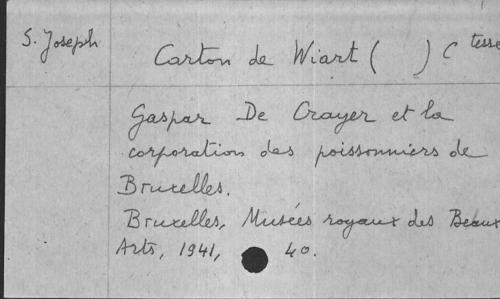 S. Joseph
Carton de Wiart ( ) Ctesse
Gaspar De Crayer et la
corporation des poissonniers de
Bruxelles.
Bruxelles, Musées royaux des Beaux
Arts, 1941, 40.